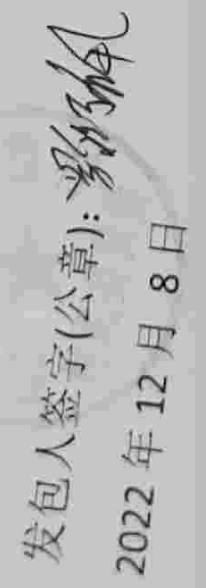 发包人签字(公章):
2022 年 12 月 8 日